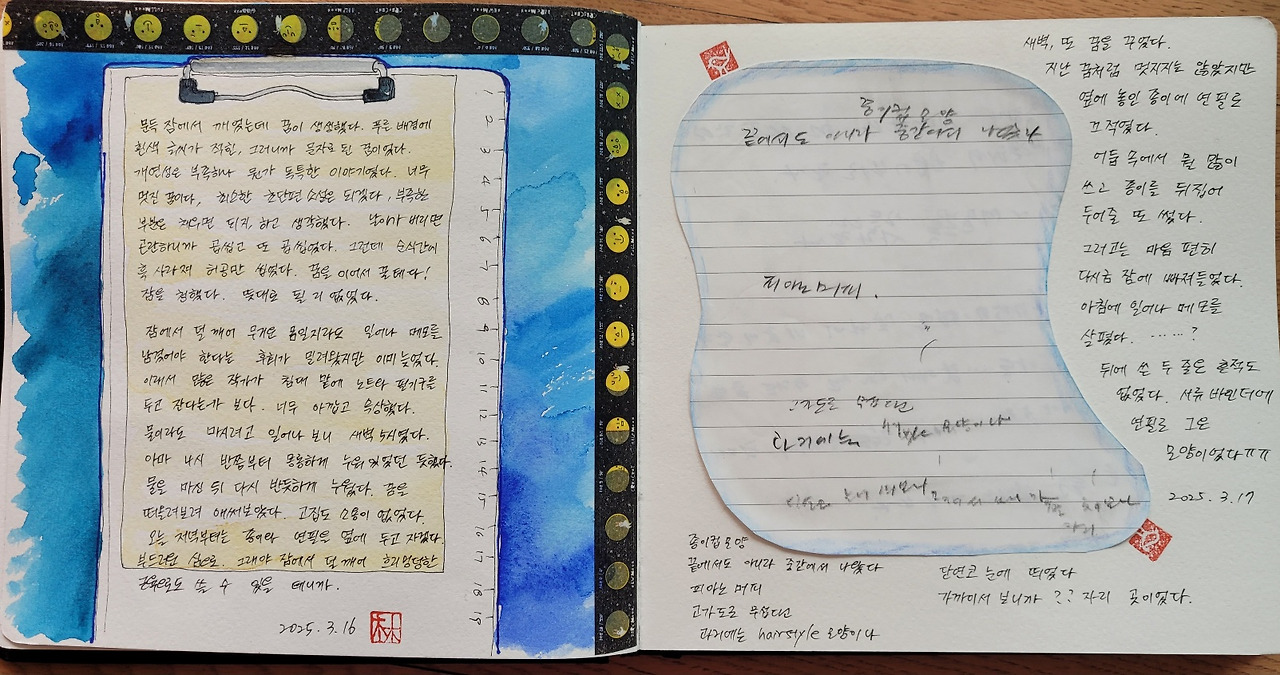 문득 잠에서 깨었는데 꿈이 생생했다. 푸른 배경에
흰색 글씨가 적힌, 그러니까 글자로 된 꿈이었다.
개연성은 부족하나 뭔가 독특한 이야기였다. 너무
멋진 꿈이다, 최소한 초단편 소설은 되겠다, 부족한
부분은 채우면 되지 하고 생각했다. 날아가 버리면
곤란하니까 곱씹고 또 곱씹었다. 그런데 순식간에
훅 사라져 허공만 씹었다. 꿈을 이어서 꿀테다!
잠을 청했다. 뜻대로 될 리 없었다.
잠에서 덜 깨어 무거운 몸일지라도 일어나 메모를
남겼어야 한다는 후회가 밀려왔지만 이미 늦었다.
이래서 많은 작가가 침대 맡에 노트와 필기구를
두고 잔다는가 보다. 너무 아깝고 속상했다.
물이라도 마시려고 일어나 보니 새벽 5시였다.
아마 4시 반쯤부터 몽롱하게 누워 있었던 듯했다.
물을 마신 뒤 다시 반듯하게 누웠다. 꿈을
떠올려보려 애써보았다. 고집도 소용이 없었다.
오늘 저녁부터는 종이와 연필은 옆에 두고 자겠다.
부드러운 심으로. 그래야 잠에서 덜 깨어 흐리멍덩한
손으로도 쓸 수 있을 테니까.
2025. 3. 16
1
2
3
4
5
6
7
8
9
10
11
12
13
14
15
16
17
18
19
새벽, 또 꿈을 꾸었다.
지난 꿈처럼 멋지지도 않았지만
옆에 놓인 종이에 연필로
끄적였다.
어둠 속에서 뭘 많이
쓰고 종이를 뒤집어
두어줄 또 썼다.
그러고는 마음 편히
다시금 잠에 빠져들었다.
아침에 일어나 메모를
살폈다. ……?
뒤에 쓴 두 줄은 흔적도
없었다. 서류 바인더에
연필로 그은
모양이었다ㅠㅠ
2025. 3. 17
종이컵 모양
끝에서도 아니라 중간에서 나
피아노 머피.
고가도로 무섭다면
과거에는 모양이나
눈에
종이컵 모양
끝에서도 아니라 중간에서 나왔다
피아노 머피
고가도로 무섭다면
과거에는 hairstyle 모양이나
단연코 눈에 띄었다
가까이서 보니까 ?? 자리 곳이었다.